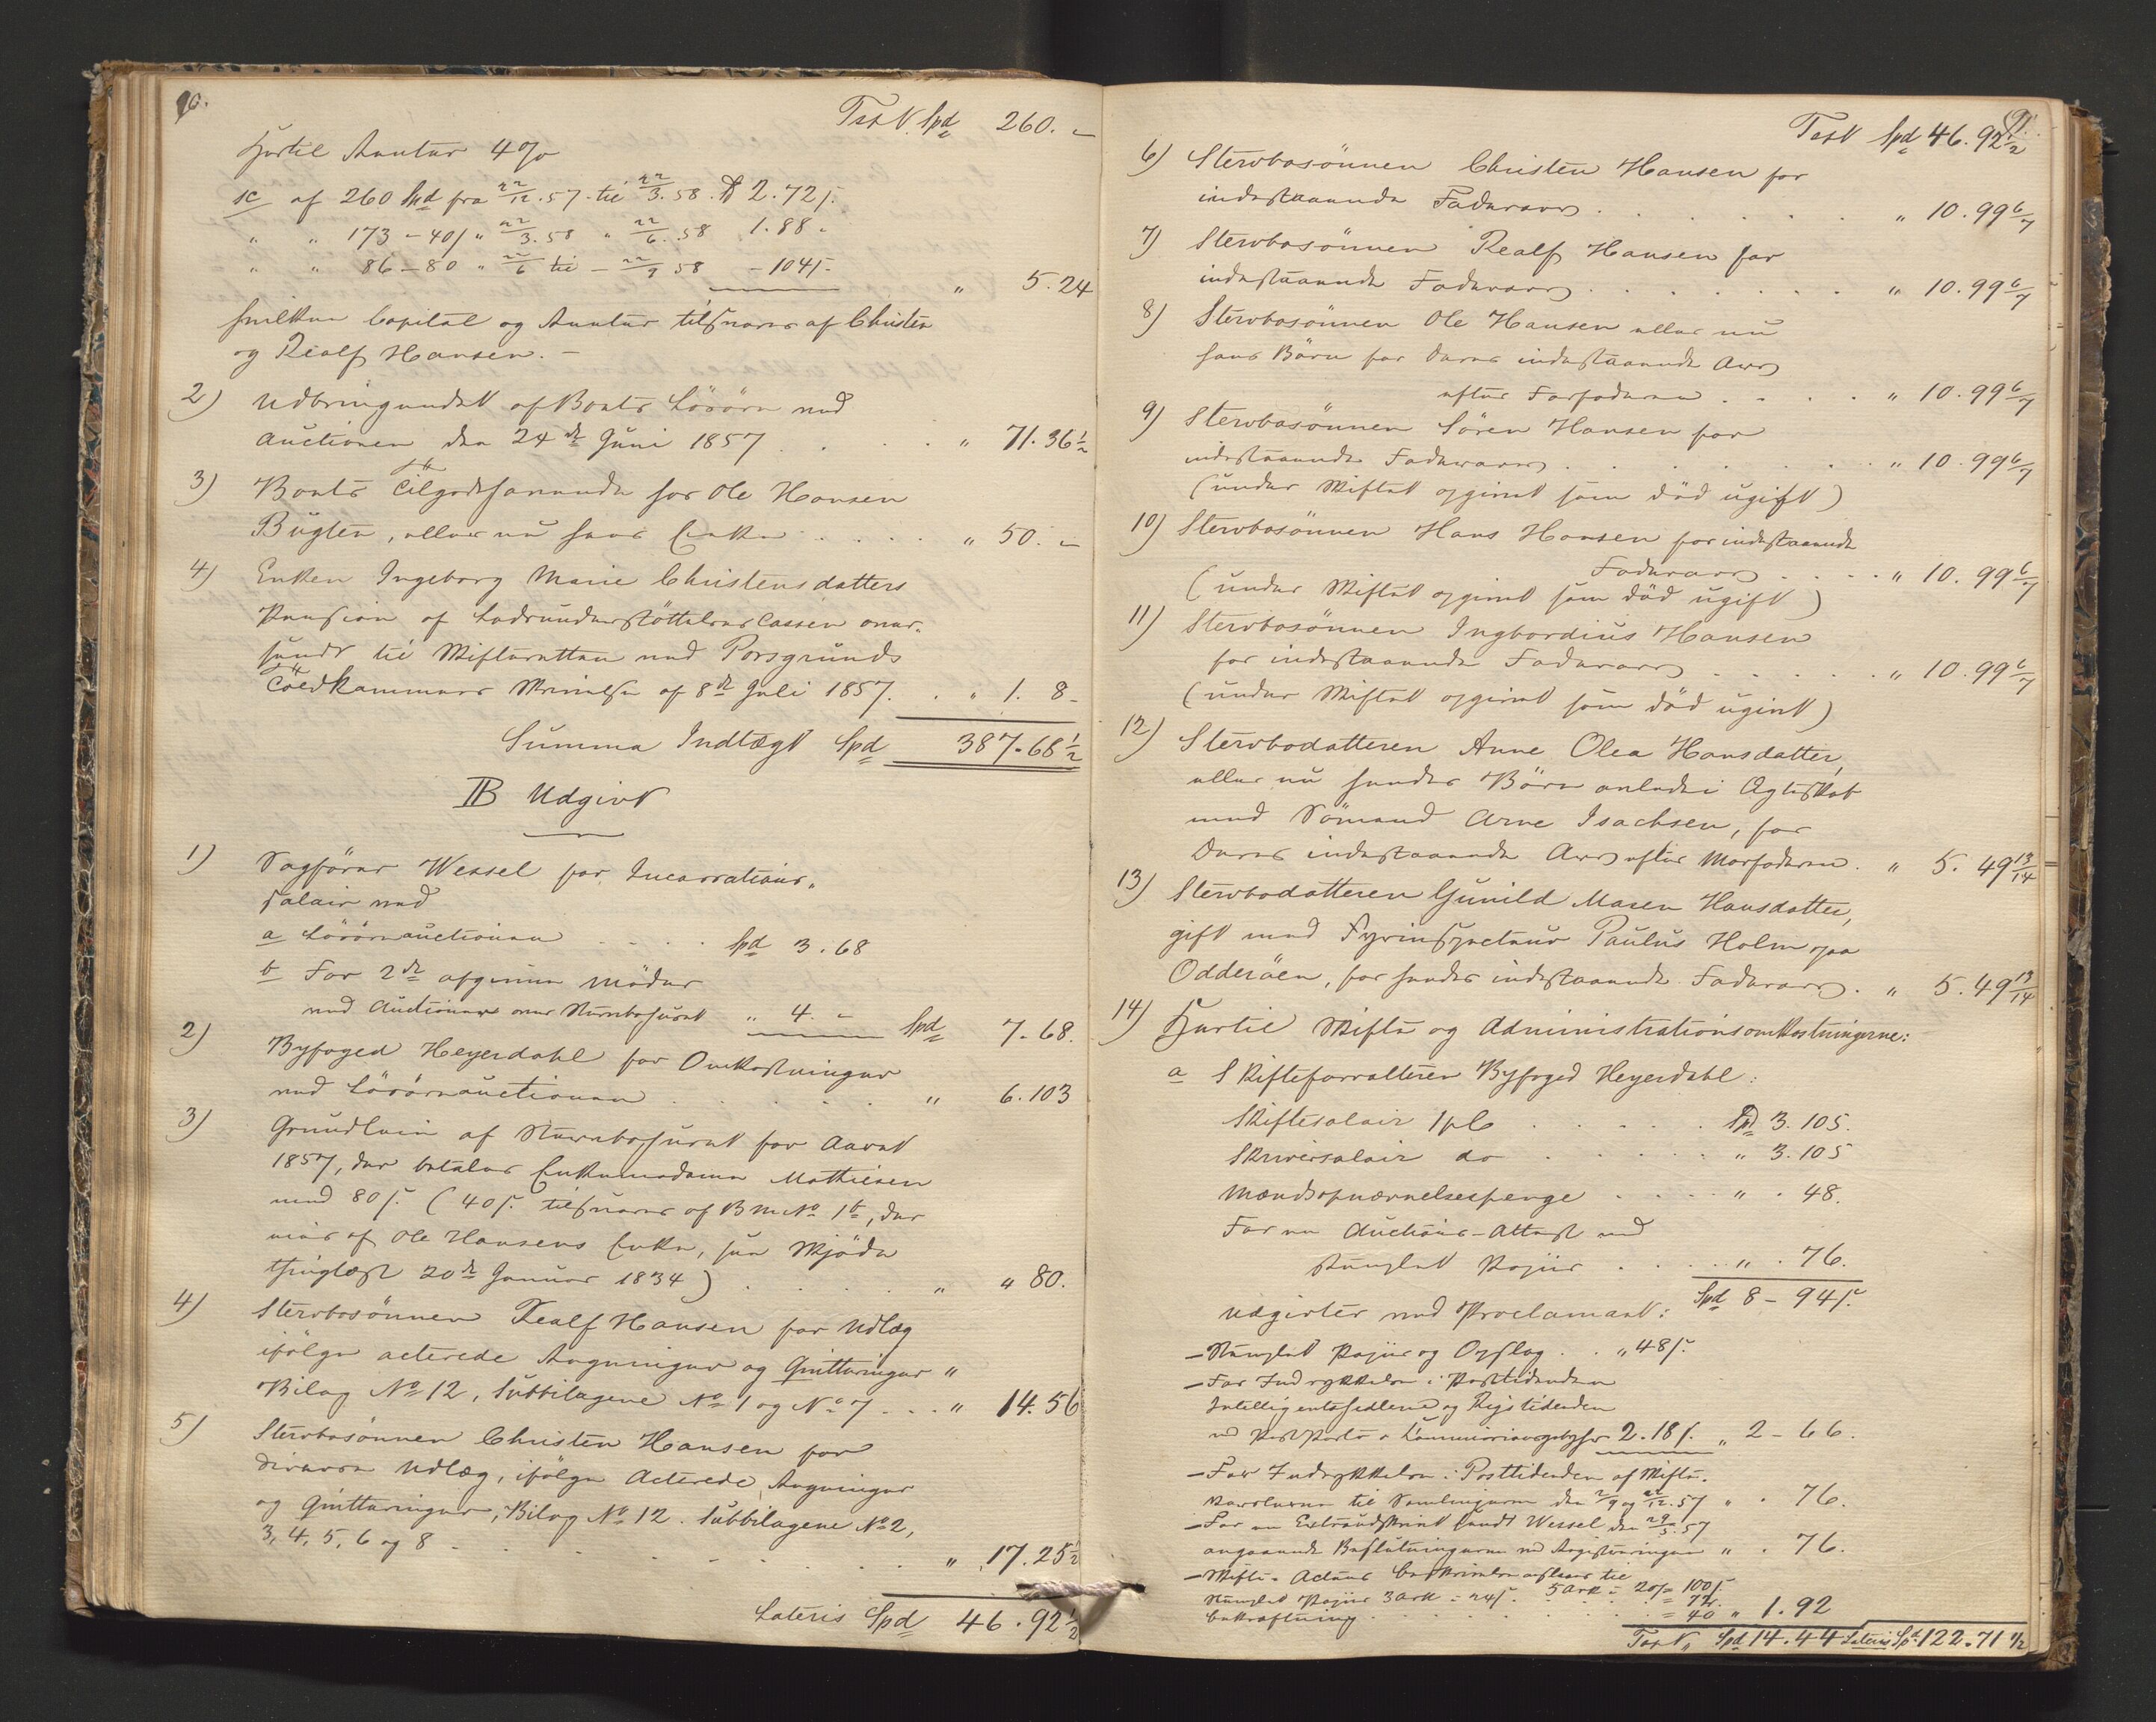 90.
Trsk. Spd 260. "
Hertil Renter 4 %
sc af 260 Spd fra 22/12.57 til 22/3.58. Spd 2.72 s.
" " 173 - 40 s " 22/3.58 " 22/6.58 1.88 "
" " 86 - 80 " 22/6 til - 22/9 58 - 104 s.
" 5.24
hvilken Capital og Renter tilsvares af Christen
og Realf Hansen. -
2) Udbringendet af Boets Lösöre ved
Auctionen den 24de Juni 1857 . . . " 71.36 1/2
3) Boets Tilgodehavende hos Ole Hansen
Bugten, eller nu hans Enke . . . . . " 50. "
4) Enken Ingeborg Marie Christensdatters
Pension af Lodsunderstöttelses Cassen over-
sendt til Skifteretten med Porsgrunds
Toldkammers Skrivelse af 8de Juli 1857. . " 1. 8 -
Summa Indtægt Spd 387.68 1/2
B Udgivt
1) Sagförer Wessel for Incassations-
salair ved
a Lösöreauctionen . . . . Spd 3.68
b For 2de afgivne Möder
ved Auctioner over Stervbohuset " 4. " Spd 7.68.
2) Byfoged Heyerdahl for Omkostninger
ved Lösöreauctionen . . . . . . " 6.103
3) Grundleie af Stervbohuset for Aaret
1857, der betales Enkemadame Mathiesen
med 80 s. (40 s. tilsvares af B M No 1b, der
eies af Ole Hansens Enke, see Skjöde
thinglæst 20de Januar 1834) . . . . " " 80.
4) Stervbosönnen Realf Hansen for Udlæg
ifölge acterede Regninger og Quitteringer "
Bilag No 12, Subbilagene No 1 og No 7 . . . " 14.56
5) Stervbosönnen Christen Hansen for
diverse Udlæg, ifölge Acterede Regninger
og Quitteringer, Bilag No 12. Subbilagene No 2,
3, 4, 5, 6 og 8 - . . . . . . " 17.25 1/2
Lateris Spd 46.92 1/2
91.
Trsk. Spd 46.92 1/2
6) Stervbosönnen Christen Hansen for
indestaaende Fadrearv . . . . . . " 10.99 6/7
7) Stervbosönnen Realf Hansen for
indestaaende Fadrearv . . . . . . " 10.99 6/7
8) Stervbosönnen Ole Hansen eller nu
hans Börn for deres indestaaende Arv
efter Farfaderen . . . . " 10.99 6/7
9) Stervbosönnen Sören Hansen for
indestaaende Fadrearv . . . . . . " 10.99 6/7
(under Skiftet opgivet som död ugift)
10) Stervbosönnen Hans Hansen for indestaaende
Fadrearv . . . . " 10.99 6/7
(under Skiftet opgivet som död ugift)
11) Stervbosönnen Ingbordius Hansen
for indestaaende Fadrearv . . . . . " 10.99 6/7
(under Skiftet opgivet som död ugivt)
12) Stervbodatteren Anne Olea Hansdatter,
eller nu hendes Börn avlede i Ægteskab
med Sömand Arne Isachsen, for
deres indestaaende Arv efter Morfaderen . " 5.49 13/14
13) Stervbodatteren Gunild Maren Hansdatter,
gift med Fyrinspecteur Paulus Holm paa
Odderöen, for hendes indestaaende Fadrearv . " 5.49 13/14
14) Hertil Skifte og Administrationsomkostningerne:
a Skifteforvalteren Byfoged Heyerdahl:
Skiftesalair 1 pC . . . . . Spd 3.105.
Skriversalair do . . . . . " 3.105
Mændsopnævnelsespenge . . . . " . 48.
For en Auctions-Attest med
stemplet Papiir . . . . " . 76.
Spd 8 - 94 s.
Udgivter ved Proclamaet:
- Stemplet Papiir og Opslag . . " 48 s.
- For Indrykkelse i Posttidenden
Intelligentssedlerne og Rigstidenden
2.18 s. " 2 - 66.
- For Indrykkelse i Posttidenden af Skifte-
til Samlingerne den 2/9 og 22/12.57 " . 76.
- For en Extraudskrivt sendt Wessel den 29/5.57
angaaende Beslutningerne ved Registreringen " . 76.
- Skifte-Actens Beskrivelse
5 Ark à 20 s = 100 s.
Stemplet Papiir 3 Ark à 24 s. . . . . = 72.
Bekræftning . . . . . . = 40 " 1.92
Trsk. Spd 14.44 Lateris Spd 122.71 1/2